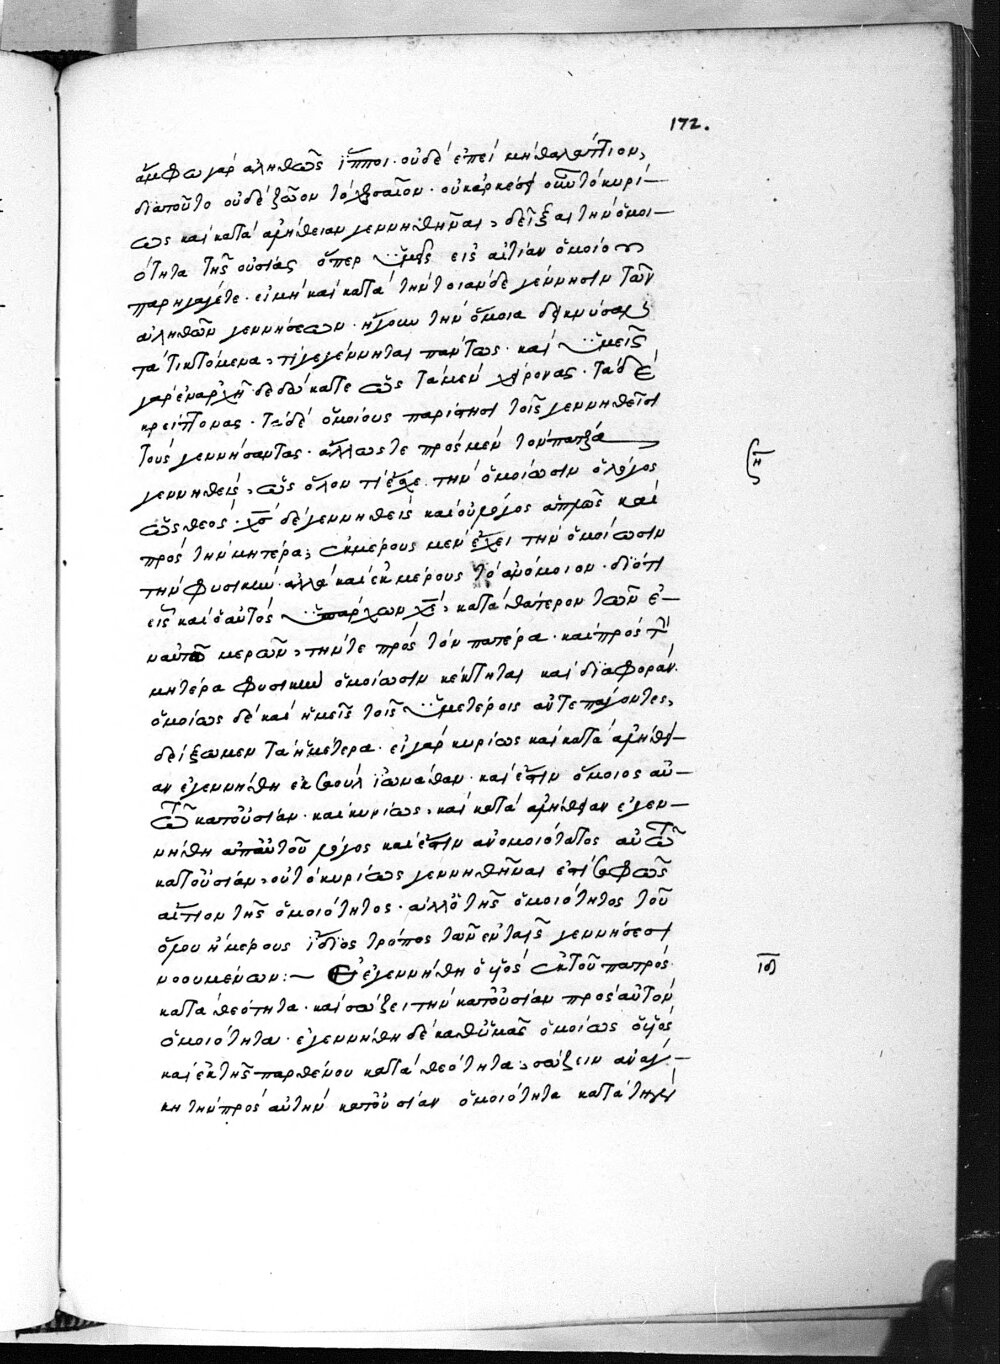 172.
ἄμφω γὰρ ἀληθῶς ἵπποι· οὐδὲ ἐπεὶ μὴ θαλάττιον,
διὰ τοῦτο οὐδὲ ζῶον τὸ χερσαῖον· οὐκ ἀρκέσει οὖν τὸ κυρί-
ως καὶ κατὰ ἀλήθειαν γεννηθῆναι, δεῖξαι τὴν ὁμοι-
ότητα τῆς οὐσίας ὅπερ ὑμεῖς εἰς αἰτίαν ὁμοίου
παρηγάγετε· εἰ μὴ καὶ κατὰ τὴν τοιάνδε γέννησιν τῶν
ἀληθῶν γεννήσεων· ἤγουν τὴν ὅμοια δεικνύσαν
τὰ τικτόμενα, τι γεγέννηται πάντως· καὶ ὑμεῖς
γὰρ ἐν ἀρχῇ δεδώκατε ὡς τὰ μὲν χείρονας· τὰ δὲ
κρείττονας· τὰ δὲ ὁμοίους παρίστησι τοῖς γεννηθεῖσι
τοὺς γεννήσαντας· ἄλλως τε πρὸς μὲν τὸν πατέρα
γεννηθεὶς, ὡς ὅλον τι ἔχε τὴν ὁμοίωσιν ὁ λόγος
ὡς θεός· χς δὲ γεννηθεὶς καὶ οὐ λόγος ἁπλῶς καὶ
πρὸς τὴν μητέρα, ἐκ μέρους μὲν ἔχει τὴν ὁμοίωσιν
τὴν φυσικὴν· ἀλλὰ καὶ ἐκ μέρους τὸ ἀνόμοιον· διότι
εἷς καὶ ὁ αὐτὸς ὑπάρχων χς, κατὰ θάτερον τῶν ἐ-
ναυτῶ μερῶν, τήν τε πρὸς τὸν πατέρα· καὶ πρὸς τὴν
μητέρα φυσικὴν ὁμοίωσιν κέκτηται καὶ διαφοράν.
ὁμοίως δὲ καὶ ἡμεῖς τοῖς ὑμετέροις αὖτε παίοντες,
δείξωμεν τὰ ἡμέτερα· εἰ γὰρ κυρίως καὶ κατὰ ἀλήθει-
αν ἐγεννήθη ἐκ σαοὺλ ἰωνάθαν· καὶ ἔστιν ὅμοιος αὐ-
τῶ κατ' οὐσίαν· καὶ κυρίως, καὶ κατὰ ἀλήθειαν ἐγεν-
νήθη ἀπ' αὐτοῦ λόγος καὶ ἔστιν ἀνομοιότατος αὐτῶ
κατ' οὐσίαν, οὐ τὸ κυρίως γεννηθῆναι ἐστὶ σαφῶς
αἴτιον τῆς ὁμοιότητος· ἀλλ' ὁ τῆς ὁμοιότητος τοῦ
ὅλου ἢ μέρους ἴδιος τρόπος τῶν ἐν ταῖς γεννήσεσι
νοουμένων:~ Εἰ ἐγεννήθη ὁ υἱὸς ἐκ τοῦ πατρὸς
κατὰ θεότητα· καὶ σώζει τὴν κατ' οὐσίαν πρὸς αὐτὸν
ὁμοιότητα· ἐγεννήθη δὲ καθ' ὑμᾶς ὁμοίως ὁ υἱὸς
καὶ ἐκ τῆς παρθένου κατὰ θεότητα, σώζειν ἀνάγ-
κη τὴν πρὸς αὐτὴν κατ' οὐσίαν ὁμοιότητα κατὰ τὴν